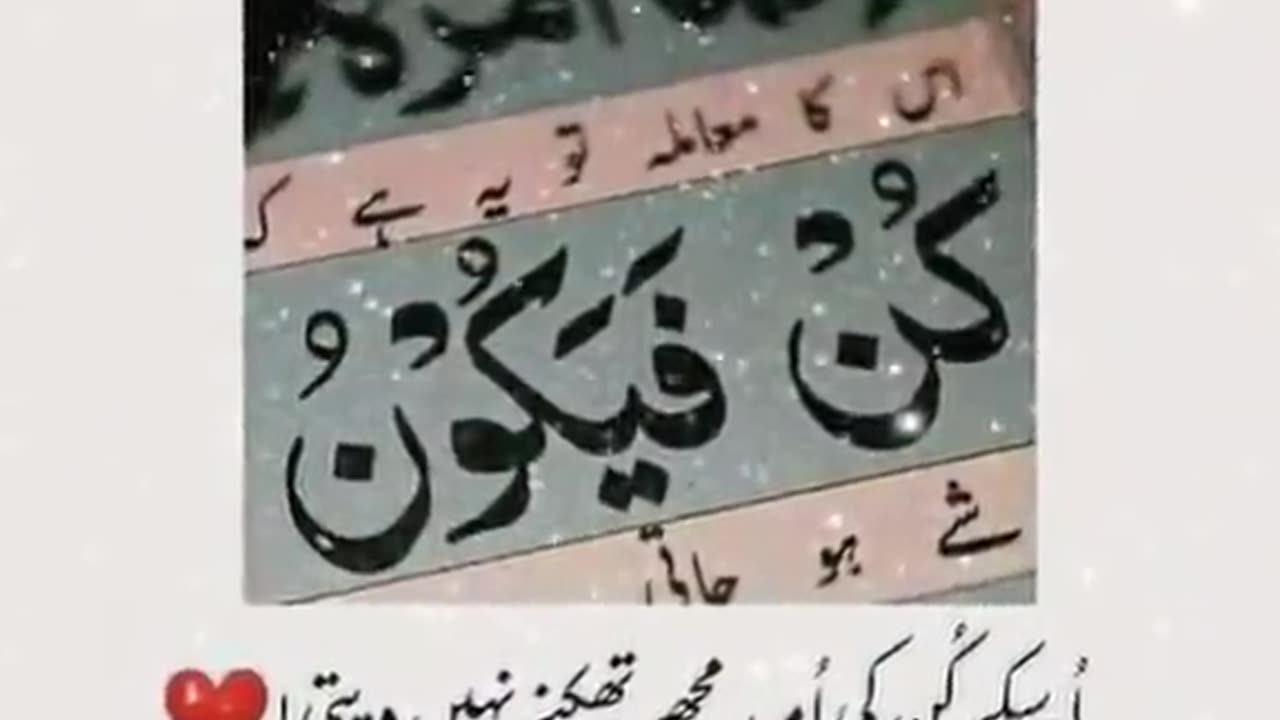 اس کا معاملہ تو یہ ہے کہ
كُنْ فَيَكُوْنُ
شے ہو جاتی
اُسکے کُن کی اُمید مجھے تھکنے نہیں دیتی